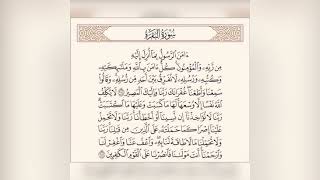 سُورَةُ الْبَقَرَةِ
ءَامَنَ الرَّسُولُ بِمَا أُنزِلَ إِلَيْهِ
مِن رَّبِّهِ وَالْمُؤْمِنُونَ كُلٌّ ءَامَنَ بِاللَّهِ وَمَلَٰٓئِكَتِهِ
وَكُتُبِهِ وَرُسُلِهِ لَا نُفَرِّقُ بَيْنَ أَحَدٍ مِّن رُّسُلِهِ وَقَالُوا
سَمِعْنَا وَأَطَعْنَا غُفْرَانَكَ رَبَّنَا وَإِلَيْكَ الْمَصِيرُ ٢٨٥ لَا يُكَلِّفُ
اللَّهُ نَفْسًا إِلَّا وُسْعَهَا لَهَا مَا كَسَبَتْ وَعَلَيْهَا مَا اكْتَسَبَتْ
رَبَّنَا لَا تُؤَاخِذْنَا إِن نَّسِينَا أَوْ أَخْطَأْنَا رَبَّنَا وَلَا تَحْمِلْ
عَلَيْنَا إِصْرًا كَمَا حَمَلْتَهُ عَلَى الَّذِينَ مِن قَبْلِنَا رَبَّنَا
وَلَا تُحَمِّلْنَا مَا لَا طَاقَةَ لَنَا بِهِ وَاعْفُ عَنَّا وَاغْفِرْ لَنَا
وَارْحَمْنَا أَنتَ مَوْلَىٰنَا فَانصُرْنَا عَلَى الْقَوْمِ الْكَٰفِرِينَ ٢٨٦